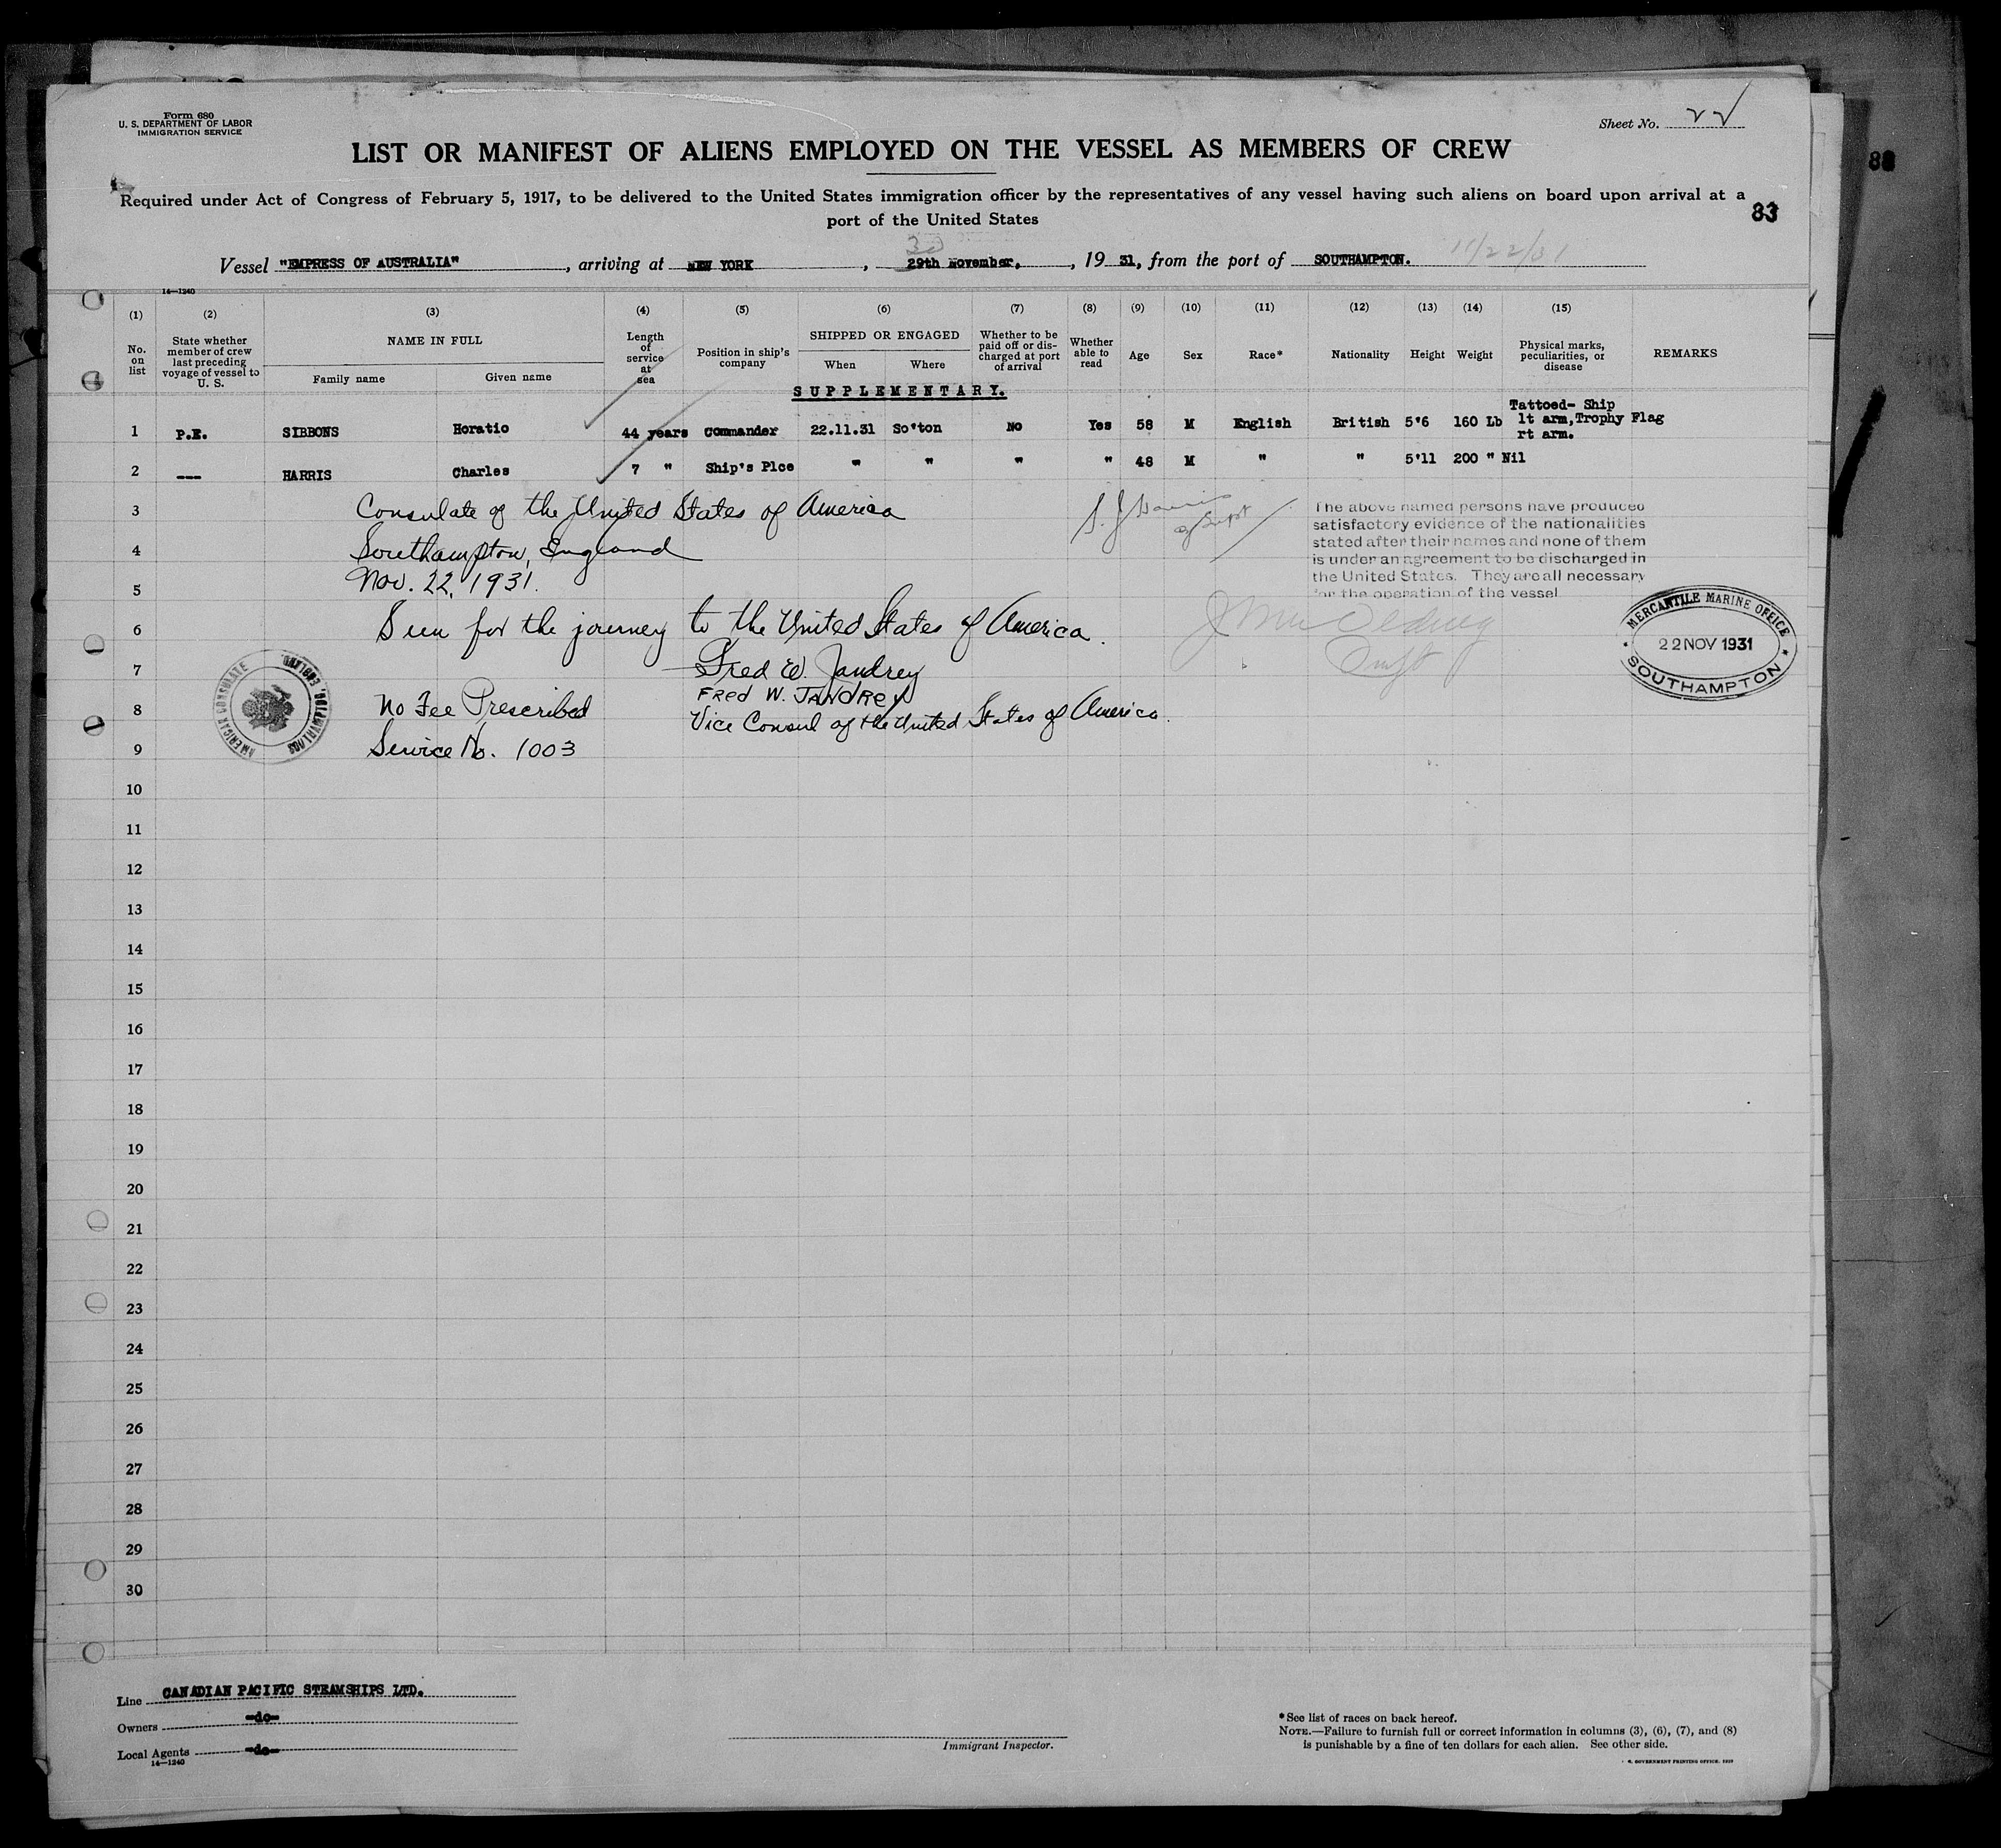 Form 680
U. S. DEPARTMENT OF LABOR
IMMIGRATION SERVICE
Sheet No.
LIST OR MANIFEST OF ALIENS EMPLOYED ON THE VESSEL AS MEMBERS OF CREW
Required under Act of Congress of February 5, 1917, to be delivered to the United States immigration officer by the representatives of any vessel having such aliens on board upon arrival at a
port of the United States
83
88
30
Vessel "EMPRESS OF AUSTRALIA", arriving at NEW YORK, 29th November, 1931, from the port of SOUTHAMPTON. 11/22/31
14—1240
(1) (2) (3) (4) (5) (6) (7) (8) (9) (10) (11) (12) (13) (14) (15)
No. on list
State whether member of crew last preceding voyage of vessel to U. S.
NAME IN FULL
Family name Given name
Length of service at sea
Position in ship's company
SHIPPED OR ENGAGED
When Where
Whether to be paid off or discharged at port of arrival
Whether able to read
Age
Sex
Race*
Nationality
Height
Weight
Physical marks, peculiarities, or disease
REMARKS
SUPPLEMENTARY.
1 P.E. SIBBONS Horatio 44 years Commander 22.11.31 So'ton No Yes 58 M English British 5'6 160 Lb Tattoed- Ship lt arm, Trophy Flag rt arm.
2 --- HARRIS Charles 7 " Ship's Plce " " " " 48 M " " 5'11 200 " Nil
3 Consulate of the United States of America
4 Southampton, England
5 Nov. 22, 1931.
6 Seen for the journey to the United States of America.
7 Fred W. Jandrey
FRED W. JANDREY
8 No Fee Prescribed Vice Consul of the United States of America.
9 Service No. 1003
The above named persons have produced
satisfactory evidence of the nationalities
stated after their names and none of them
is under an agreement to be discharged in
the United States. They are all necessary
for the operation of the vessel
MERCANTILE MARINE OFFICE
22 NOV 1931
SOUTHAMPTON
AMERICAN CONSULATE
SOUTHAMPTON, ENGLAND.
10
11
12
13
14
15
16
17
18
19
20
21
22
23
24
25
26
27
28
29
30
Line CANADIAN PACIFIC STEAMSHIPS LTD.
Owners -do-
Local Agents -do-
14—1240
Immigrant Inspector.
*See list of races on back hereof.
NOTE.—Failure to furnish full or correct information in columns (3), (6), (7), and (8)
is punishable by a fine of ten dollars for each alien. See other side.